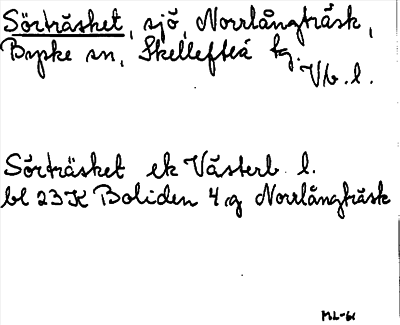 Sörträsket, sjö, Norrlångträsk,
Byske sn, Skellefteå tg.
Vb. l.
Sörträsket ek Västerb. l.
bl 23 K Boliden 4 g Norrlångträsk
ML-61